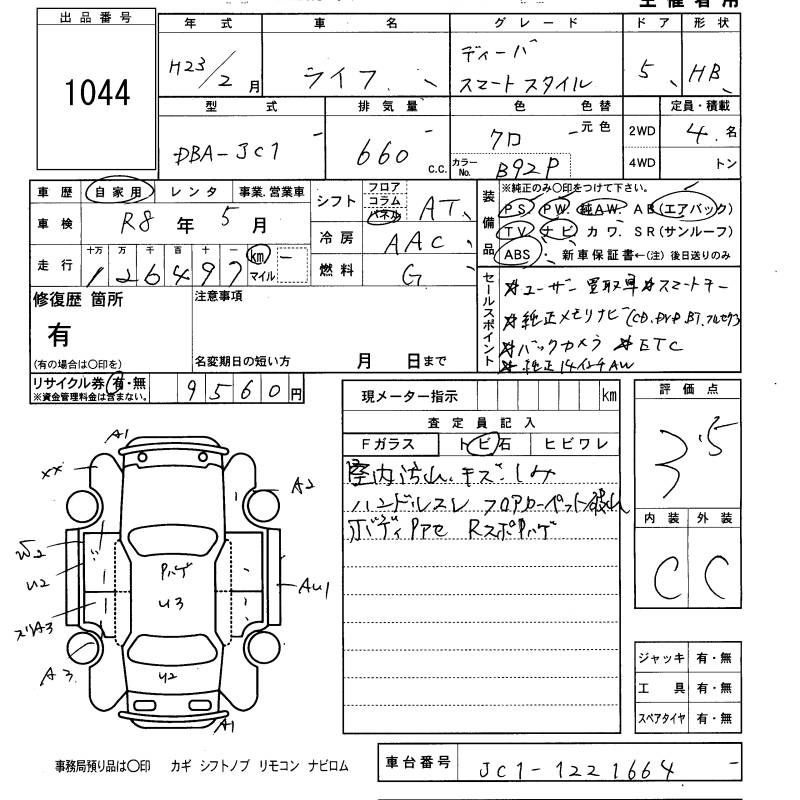 出品番号
1044
年式 車名 グレード ドア 形状
H23/2月 ライフ ディーバ スマートスタイル 5 HB
型式 排気量 色 色替 定員・積載
DBA-JC1 660 C.C. クロ 元色 2WD 4WD 4名 トン
カラーNo. B92P
車歴 自家用 レンタ 事業.営業車
車検 R8年5月
走行 十万 万 千 百 十 一 km マイル
126497
シフト フロア コラム パネル AT
冷房 AAC
燃料 G
装備品 ※純正のみ〇印をつけて下さい。
PS PW. 純AW. AB(エアバック)
TV ナビ カワ. SR(サンルーフ)
ABS 新車保証書←(注)後日送りのみ
修復歴 箇所
有
(有の場合は〇印を)
注意事項
名変期日の短い方 月 日まで
セールスポイント
ユーザー買取車 スマートキー
純正メモリナビ(CD.DVD.BT.フルセグ)
バックカメラ ETC
純正14インチAW
リサイクル券 有・無 9560円
※資金管理料金は含まない。
現メーター指示 km
査定員記入
Fガラス トビ石 ヒビワレ
室内汚れ.キズ.シミ
ハンドルスレ フロアカーペット破れ
ボディ Rスポ
評価点
3.5
内装 外装
C C
ジャッキ 有・無
工具 有・無
スペアタイヤ 有・無
A1
XX
A2
W2
U2
スリA3
A3
Pハゲ
U3
U2
AU1
A1
事務局預り品は〇印 カギ シフトノブ リモコン ナビロム
車台番号 JC1-1221664